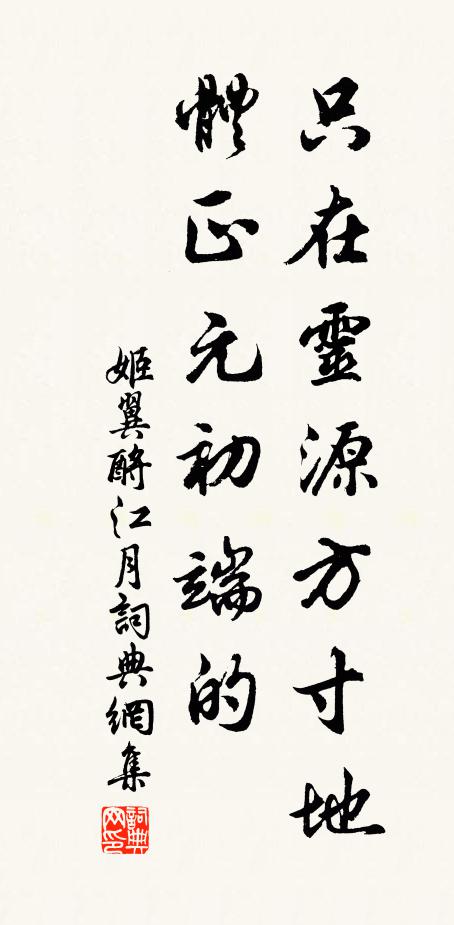 只在靈源方寸地
體正元初端的
姬翼酹江月詞典網集
詞典網印